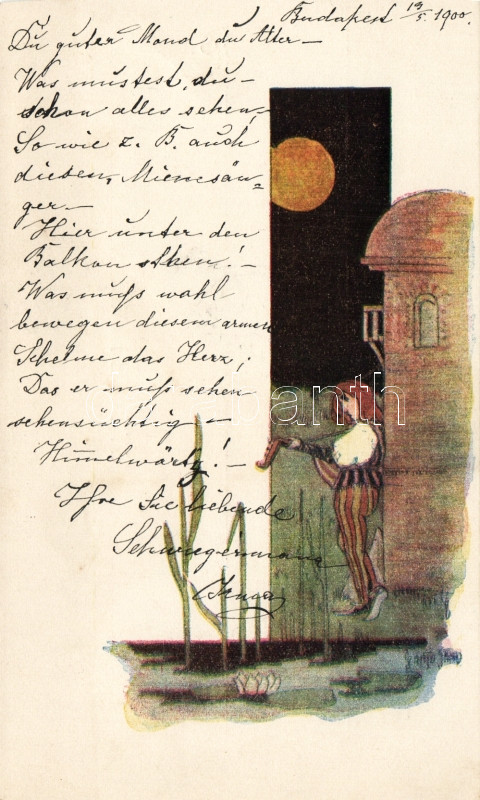 Budapest 19/5. 1900.
Du guter Mond du Alter –
Was mustest du –
schon alles sehen,
So wie z. B. auch
diesen, Mienesän-
ger –
Hier unter den
Balkon sthen! –
Was muß wohl
bewegen diesem armen
Schelme das Herz;
Das er muß sehen
sehensüchtig –
Himmelwärtz! –
Ihre Sie liebende
darabanth